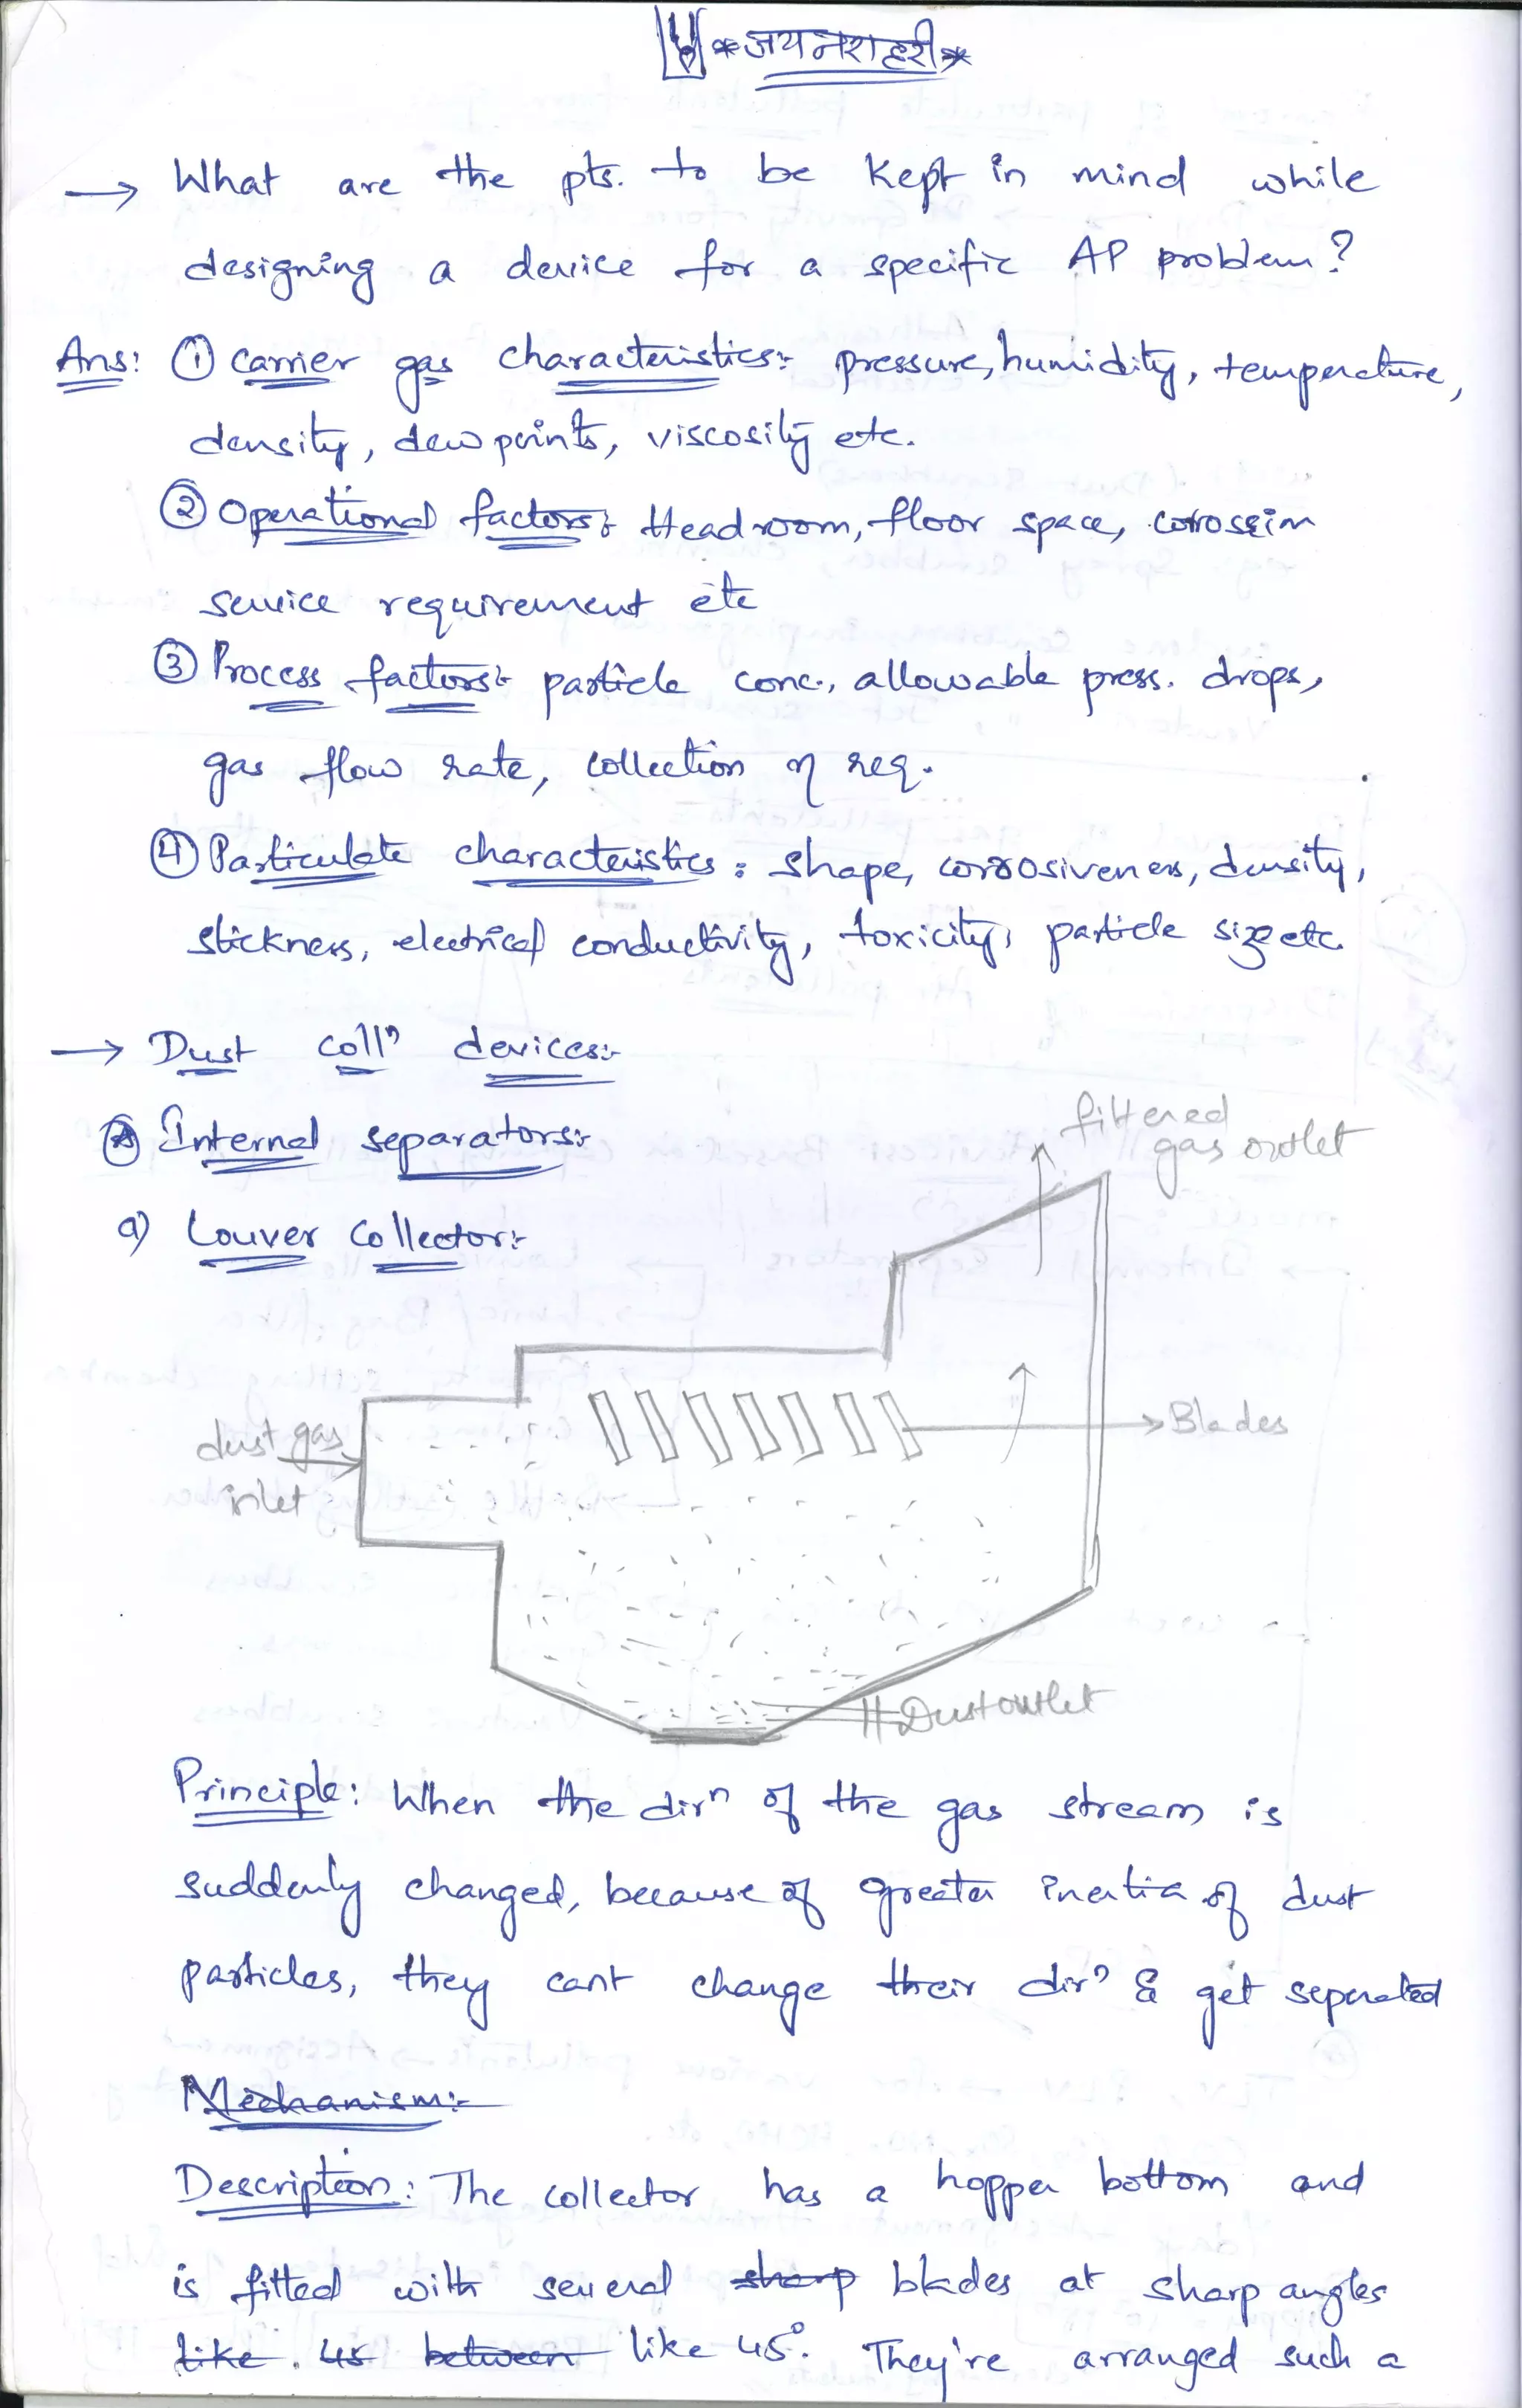 *जय नरहरी*
→ What are the pts. to be kept in mind while
designing a device for a specific AP problem?
Ans: ① Carrier gas characteristics:- pressure, humidity, temperature,
density, dew points, viscosity etc.
② Operational factors:- Head room, floor space, corrossion
service requirement etc
③ Process factors:- particle conc., allowable press. drops,
gas flow rate, collection η req.
④ Particulate characteristics: shape, corrosiveness, density,
stickness, electrical conductivity, toxicity, particle size etc.
→ Dust collⁿ devices:-
Internal separators:-
filtered
gas outlet
a) Louver Collector:-
dust gas
inlet
Blades
Dust outlet
Principle: When the dirⁿ of the gas stream is
suddenly changed, because of greater inertia of dust
particles, they cant change their dirⁿ & get seperated
Mechanism:-
Description: The collector has a hopper bottom and
is fitted with several sharp blades at sharp angles
like. 45 between like 45°. They're arranged such a